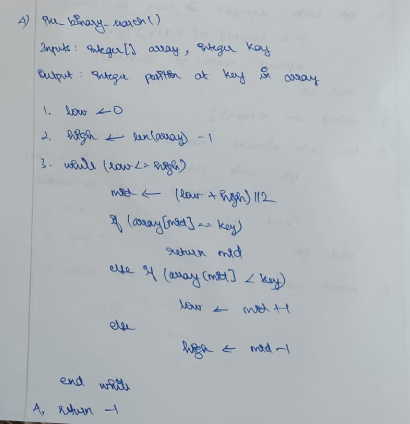 4) Pre binary_search()
Inputs: integer[] array, integer key
Output: integer position at key in array
1. low ← 0
2. high ← len(array) - 1
3. while (low <= high)
mid ← (low + high)//2
if (array[mid] == key)
return mid
else if (array[mid] < key)
low ← mid + 1
else
high ← mid - 1
end while
4. return -1